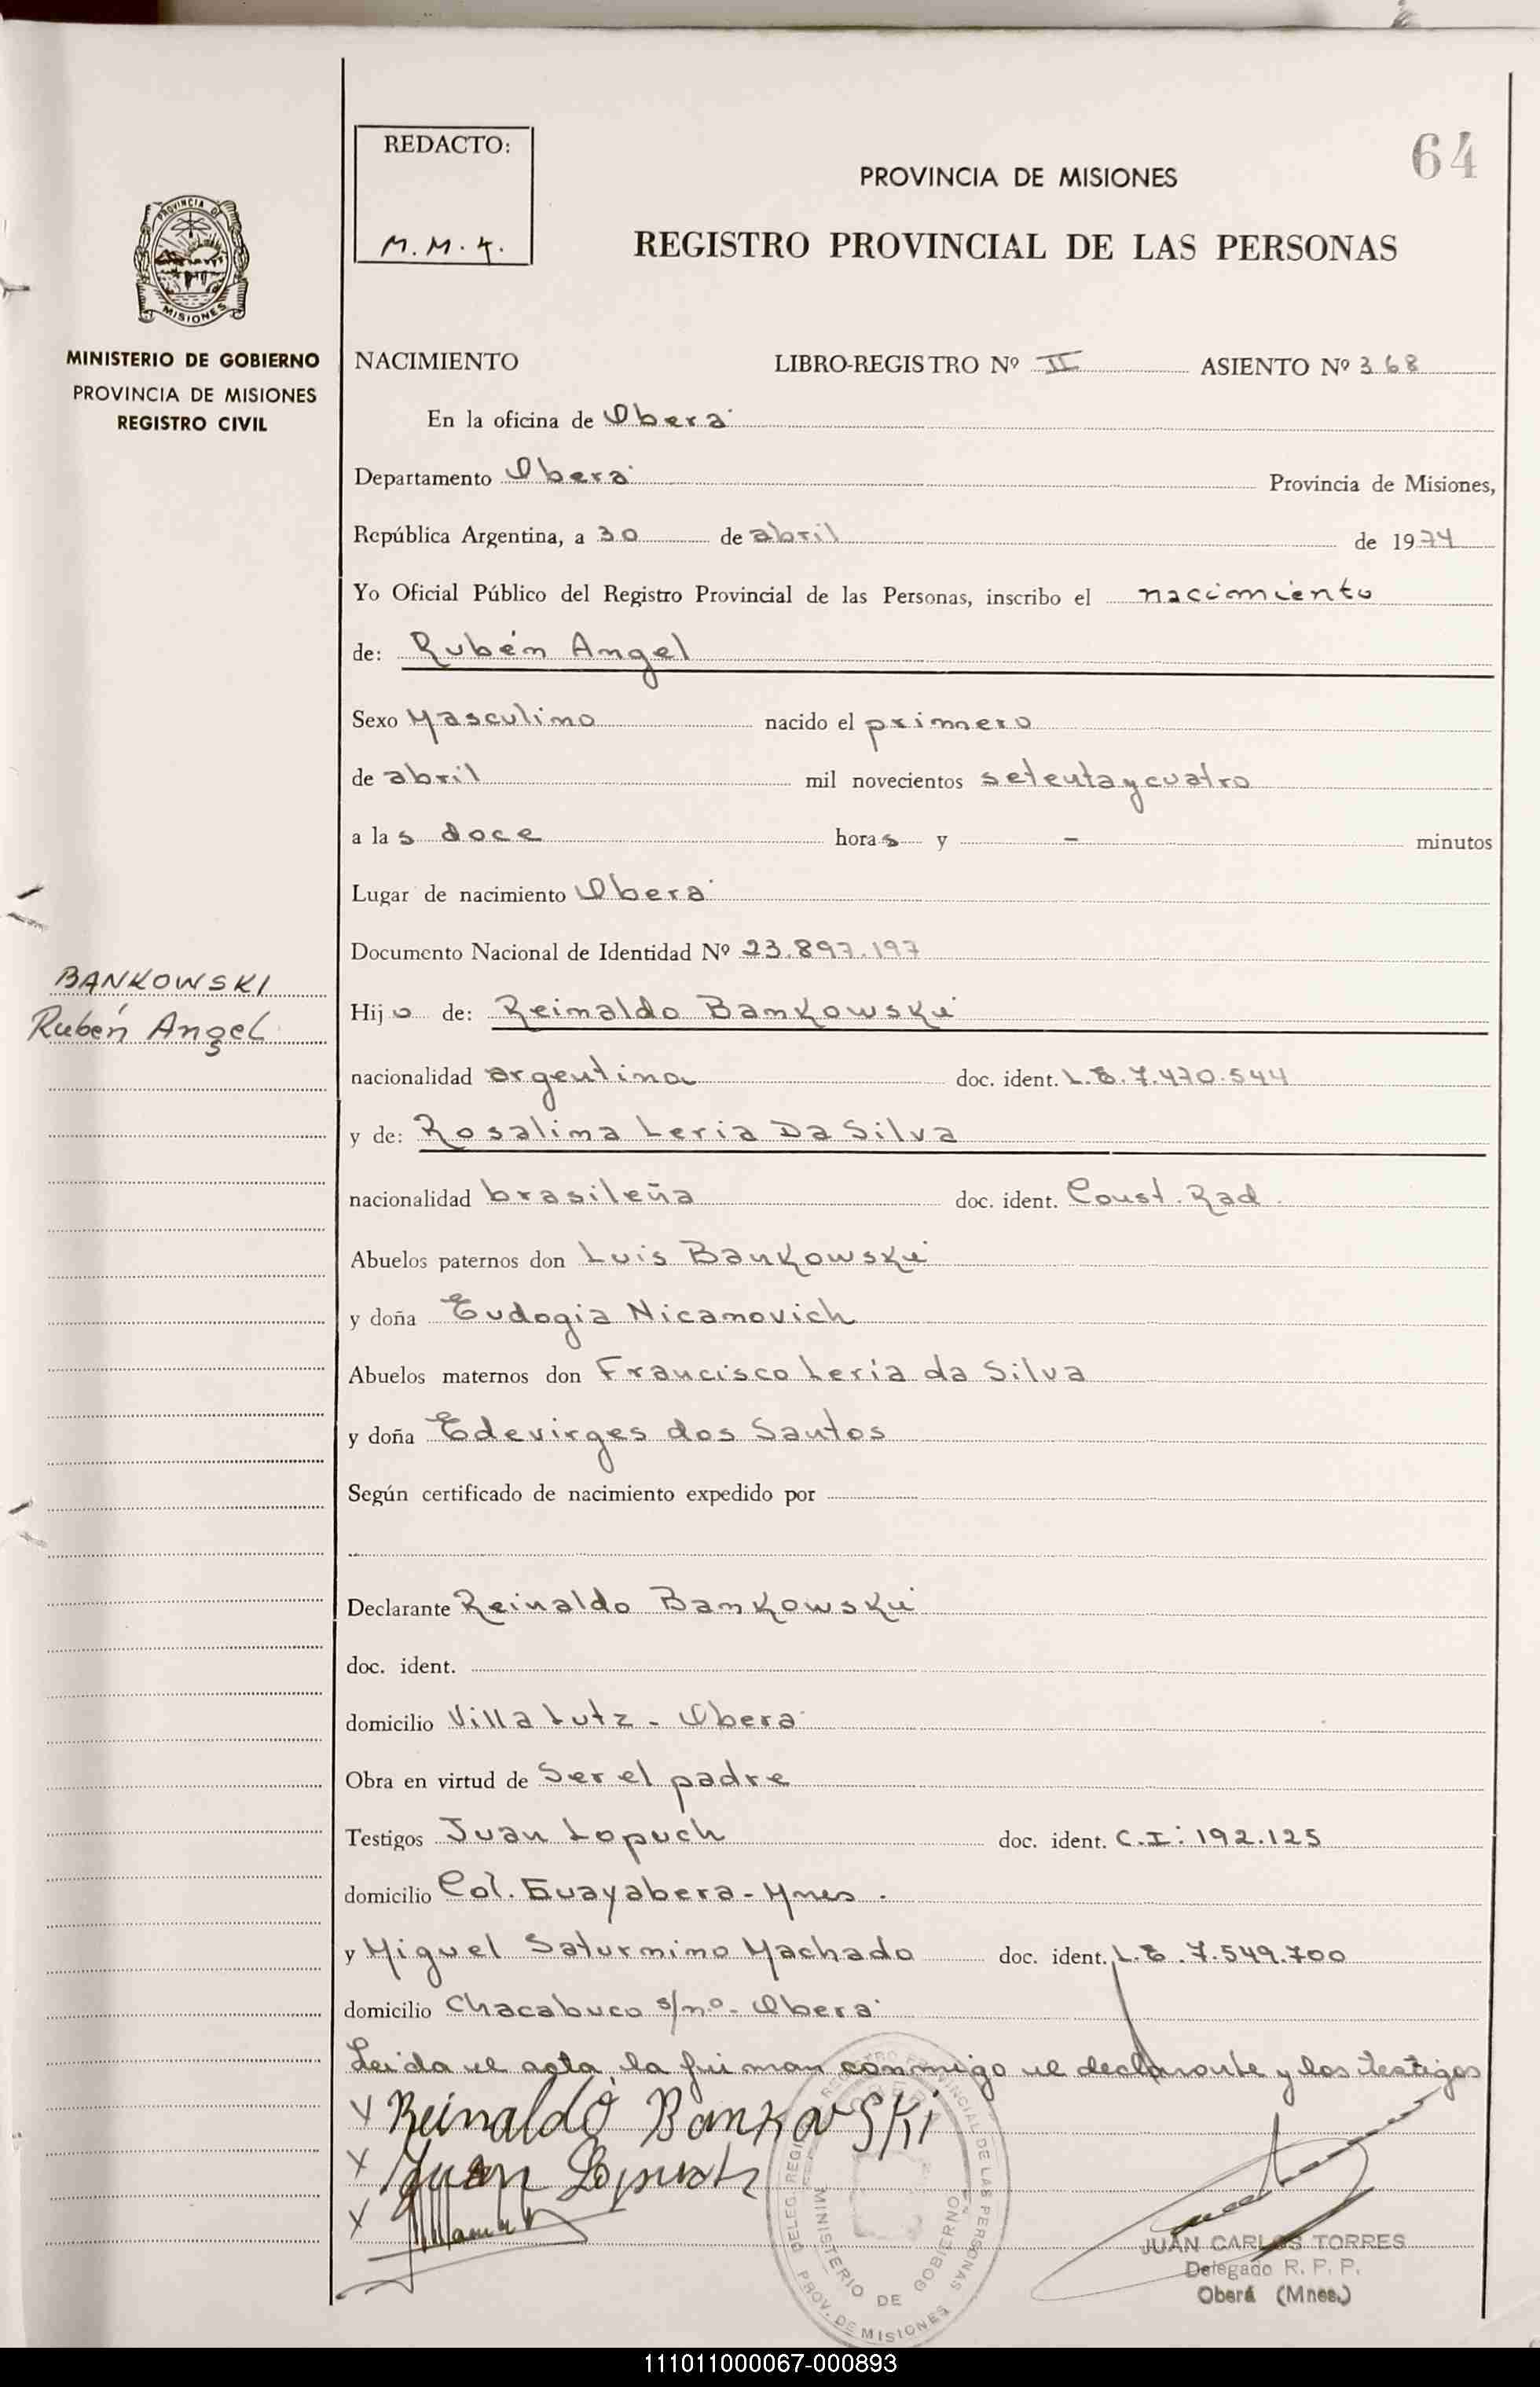 64
REDACTO:
M. M. 4.
PROVINCIA DE MISIONES
REGISTRO PROVINCIAL DE LAS PERSONAS
PROVINCIA DE
MISIONES
MINISTERIO DE GOBIERNO
PROVINCIA DE MISIONES
REGISTRO CIVIL
NACIMIENTO LIBRO-REGISTRO Nº II ASIENTO Nº 368
En la oficina de Oberá
Departamento Oberá Provincia de Misiones,
República Argentina, a 30 de abril de 1974
Yo Oficial Público del Registro Provincial de las Personas, inscribo el nacimiento
de: Rubén Angel
Sexo Masculino nacido el primero
de abril mil novecientos setenta y cuatro
a las doce horas y - minutos
Lugar de nacimiento Oberá
Documento Nacional de Identidad Nº 23.897.197
BANKOWSKI
Rubén Angel
Hijo de: Reinaldo Bankowski
nacionalidad argentina doc. ident. L.E. 7.470.544
y de: Rosalina Leria Da Silva
nacionalidad brasileña doc. ident. Const. Rad.
Abuelos paternos don Luis Bankowski
y doña Eudogia Nicanovich
Abuelos maternos don Francisco Leria da Silva
y doña Edevirges dos Santos
Según certificado de nacimiento expedido por
Declarante Reinaldo Bankowski
doc. ident.
domicilio Villa Lutz - Oberá
Obra en virtud de Ser el padre
Testigos Juan Lopuch doc. ident. C.I: 192.125
domicilio Col. Guayabera - Mnes.
y Miguel Saturnino Machado doc. ident. L.E. 7.549.700
domicilio Chacabuco s/nº - Oberá
Leida el acta, la firman conmigo el declarante y los testigos
X Reinaldo BanKovSKi
X Juan Lopuch
X
REGISTRO PROVINCIAL DE LAS PERSONAS
MINISTERIO DE GOBIERNO
PROV. DE MISIONES
JUAN CARLOS TORRES
Delegado R. P. P.
Oberá (Mnes.)
111011000067-000893